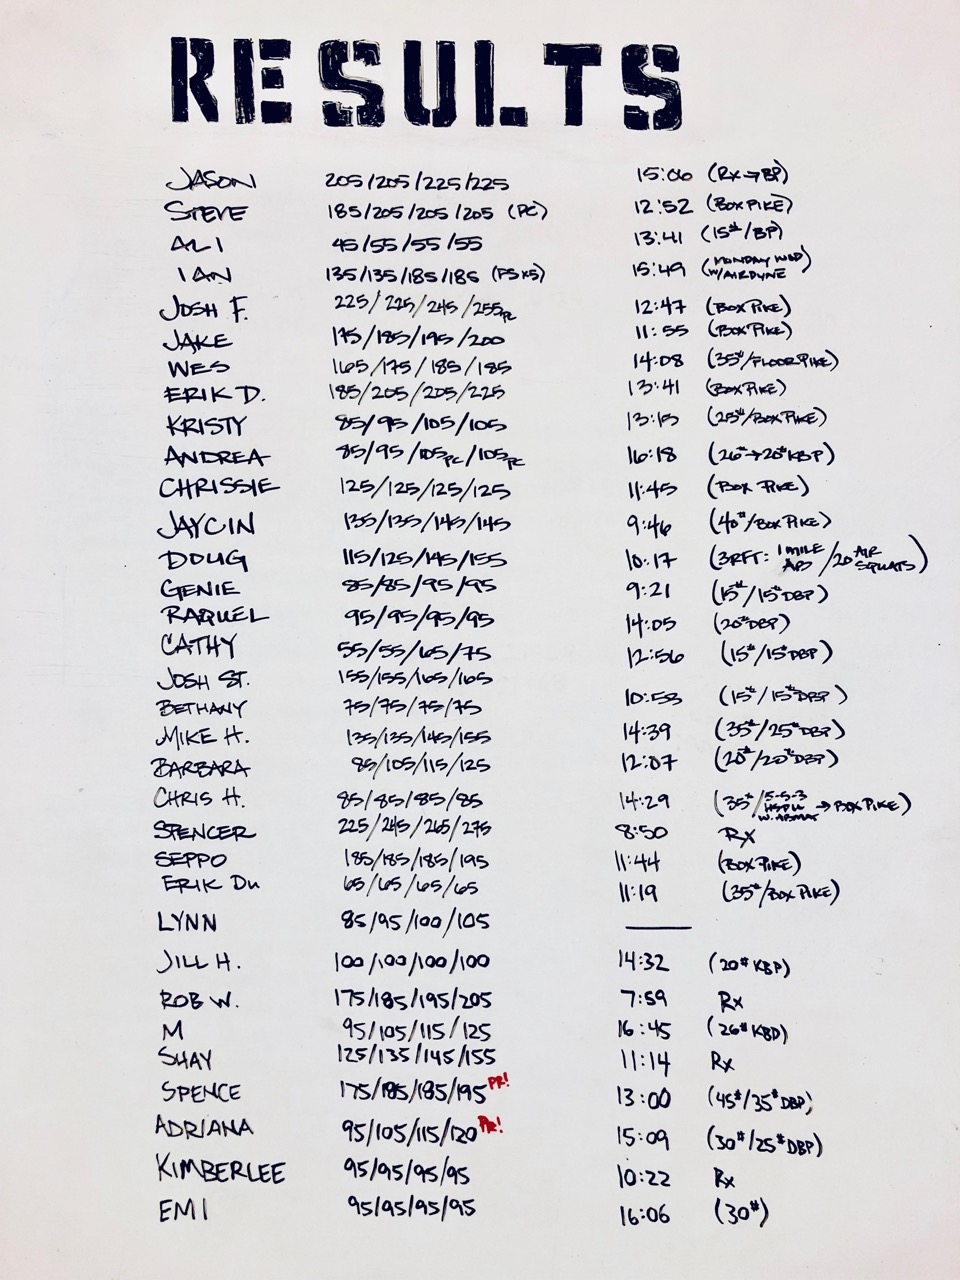 RESULTS
JASON 205/205/225/225 15:06 (RX→BP)
STEVE 185/205/205/205 (PC) 12:52 (BOX PIKE)
ALI 45/55/55/55 13:41 (15#/BP)
IAN 135/135/185/185 (PS x5) 15:49 (MONDAY WOD W/AIRDYNE)
JOSH F. 225/225/245/255PC 12:47 (BOX PIKE)
JAKE 175/185/195/200 11:55 (BOX PIKE)
WES 165/175/185/185 14:08 (35#/FLOOR PIKE)
ERIK D. 185/205/205/225 13:41 (BOX PIKE)
KRISTY 85/95/105/105 13:15 (25#/BOX PIKE)
ANDREA 85/95/105PC/105PC 16:18 (26#→20# KBP)
CHRISSIE 125/125/125/125 11:45 (BOX PIKE)
JAYCIN 135/135/145/145 9:46 (40#/BOX PIKE)
DOUG 115/125/145/155 10:17 (3RFT: 1 MILE AB/20 AIR SQUATS)
GENIE 85/85/95/95 9:21 (15#/15# DBP)
RAQUEL 95/95/95/95 14:05 (20# DBP)
CATHY 55/55/65/75 12:56 (15#/15# DBP)
JOSH ST. 155/155/165/165
BETHANY 75/75/75/75 10:53 (15#/15# DBP)
MIKE H. 135/135/145/155 14:39 (35#/25# DBP)
BARBARA 85/105/115/125 12:07 (20#/20# DBP)
CHRIS H. 85/85/85/85 14:29 (35#/5-5-3 HSPU W. ABMAT → BOX PIKE)
SPENCER 225/245/265/275 8:50 RX
SEPPO 185/185/185/195 11:44 (BOX PIKE)
ERIK DU 65/65/65/65 11:19 (35#/BOX PIKE)
LYNN 85/95/100/105 —
JILL H. 100/100/100/100 14:32 (20# KBP)
ROB W. 175/185/195/205 7:59 RX
M 95/105/115/125 16:45 (26# KBD)
SHAY 125/135/145/155 11:14 RX
SPENCE 175/185/185/195 PR! 13:00 (45#/35# DBP)
ADRIANA 95/105/115/120 PR! 15:09 (30#/25# DBP)
KIMBERLEE 95/95/95/95 10:22 Rx
EMI 95/95/95/95 16:06 (30#)